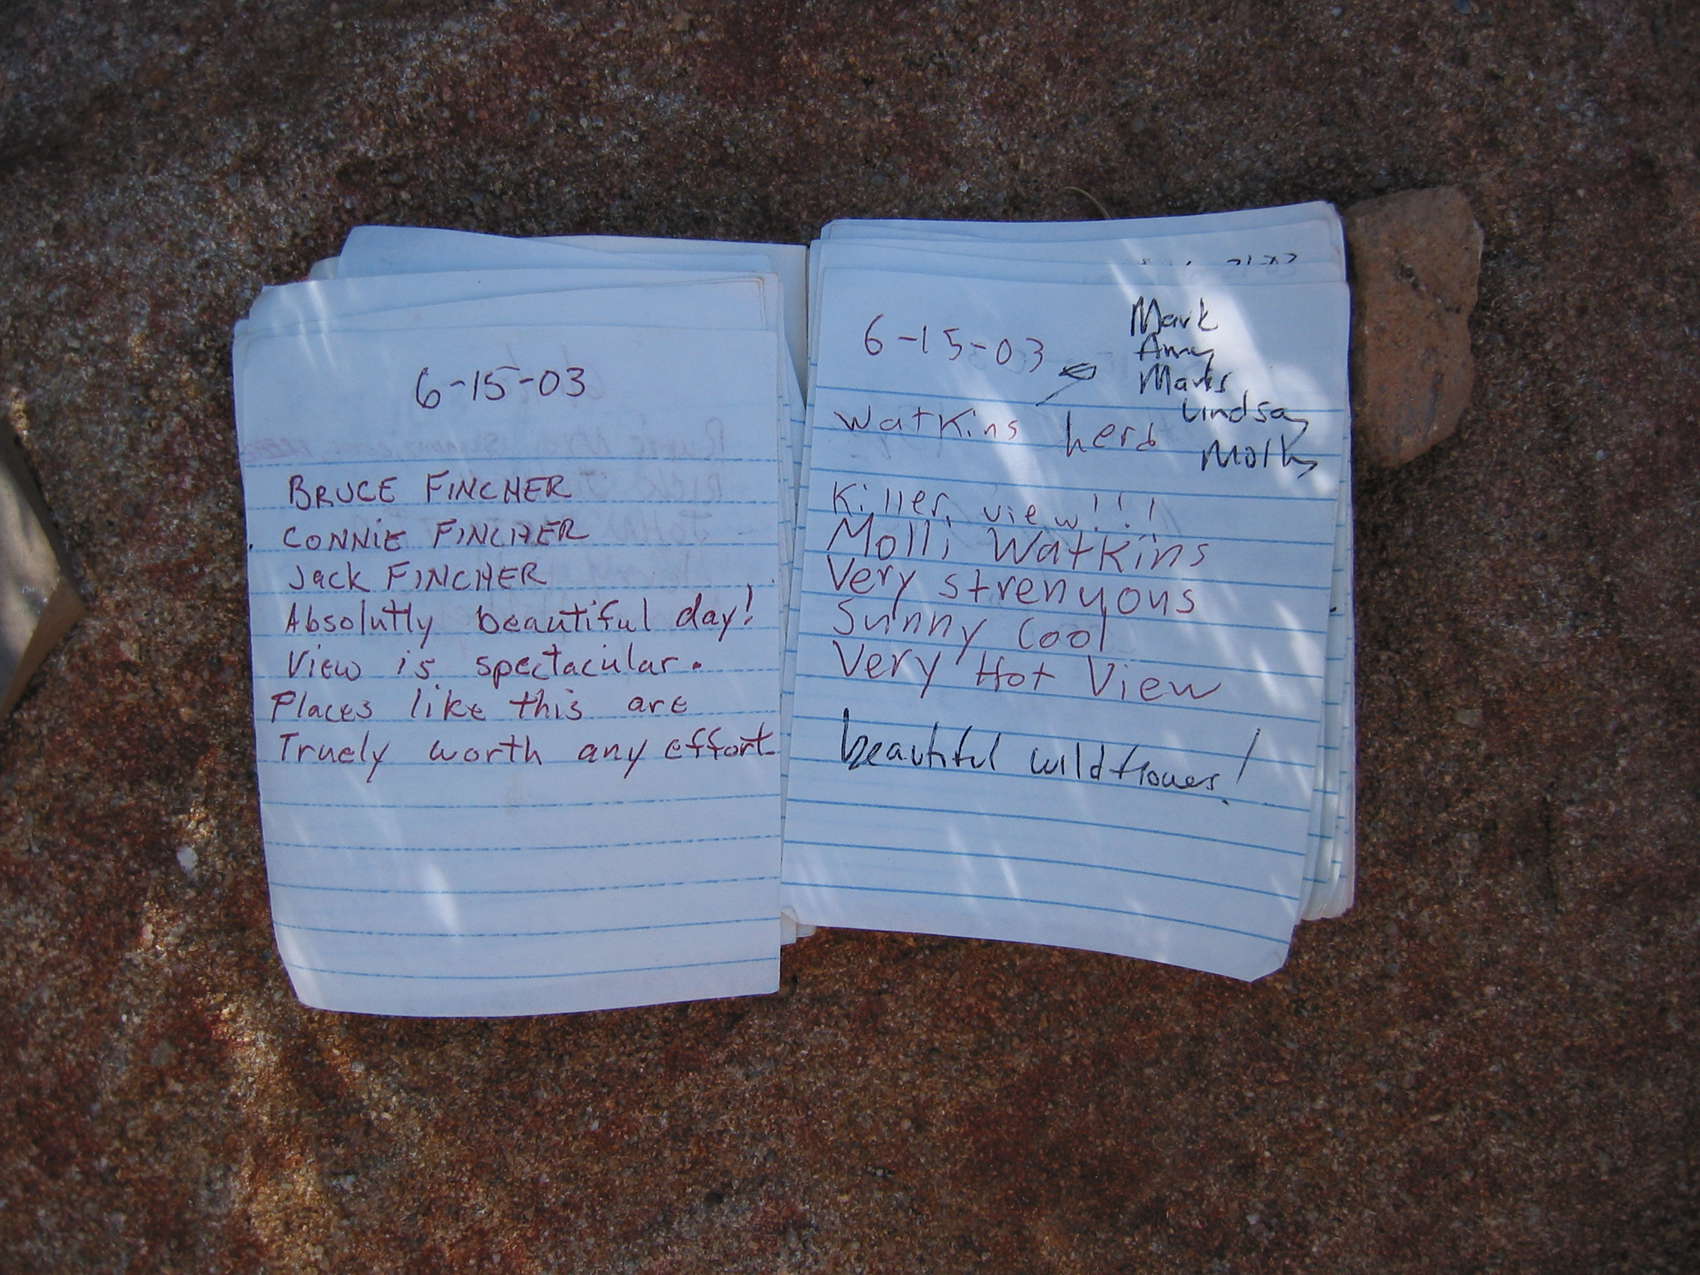 6-15-03
BRUCE FINCHER
CONNIE FINCHER
Jack FINCHER
Absolutly beautiful day!
View is spectacular.
Places like this are
Truely worth any effort
6-15-03
Mark
Amy
Lindsay
Watkins herd
Killer view!!!
Molli Watkins
Very strenyous
Sunny Cool
Very Hot View
beautiful wildflowers!